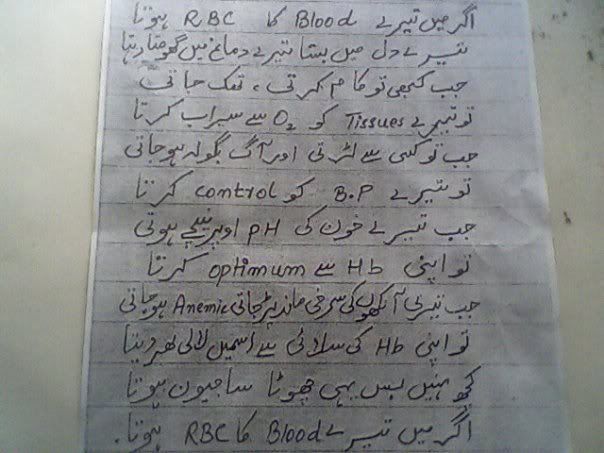 اگر میں تیرے Blood کا RBC ہوتا
تیرے دل میں بستا تیرے دماغ میں گھومتا رہتا
جب کبھی تو کام کرتی، تھک جاتی
تو تیرے Tissues کو O2 سے سیراب کرتا
جب تو کسی سے لڑتی اور آگ بگولہ ہوجاتی
تو تیرے B.P کو control کرتا
جب تیرے خون کی pH اوپر نیچے ہوتی
تو اپنی Hb سے optimum کرتا
جب تیری آنکھوں کی سرخی ماند پڑجاتی Anemic ہوجاتی
تو اپنی Hb کی سلائی سے اسمیں لالی بھر دیتا
کچھ نہیں بس یہی چھوٹا سا جیون ہوتا
اگر میں تیرے Blood کا RBC ہوتا.